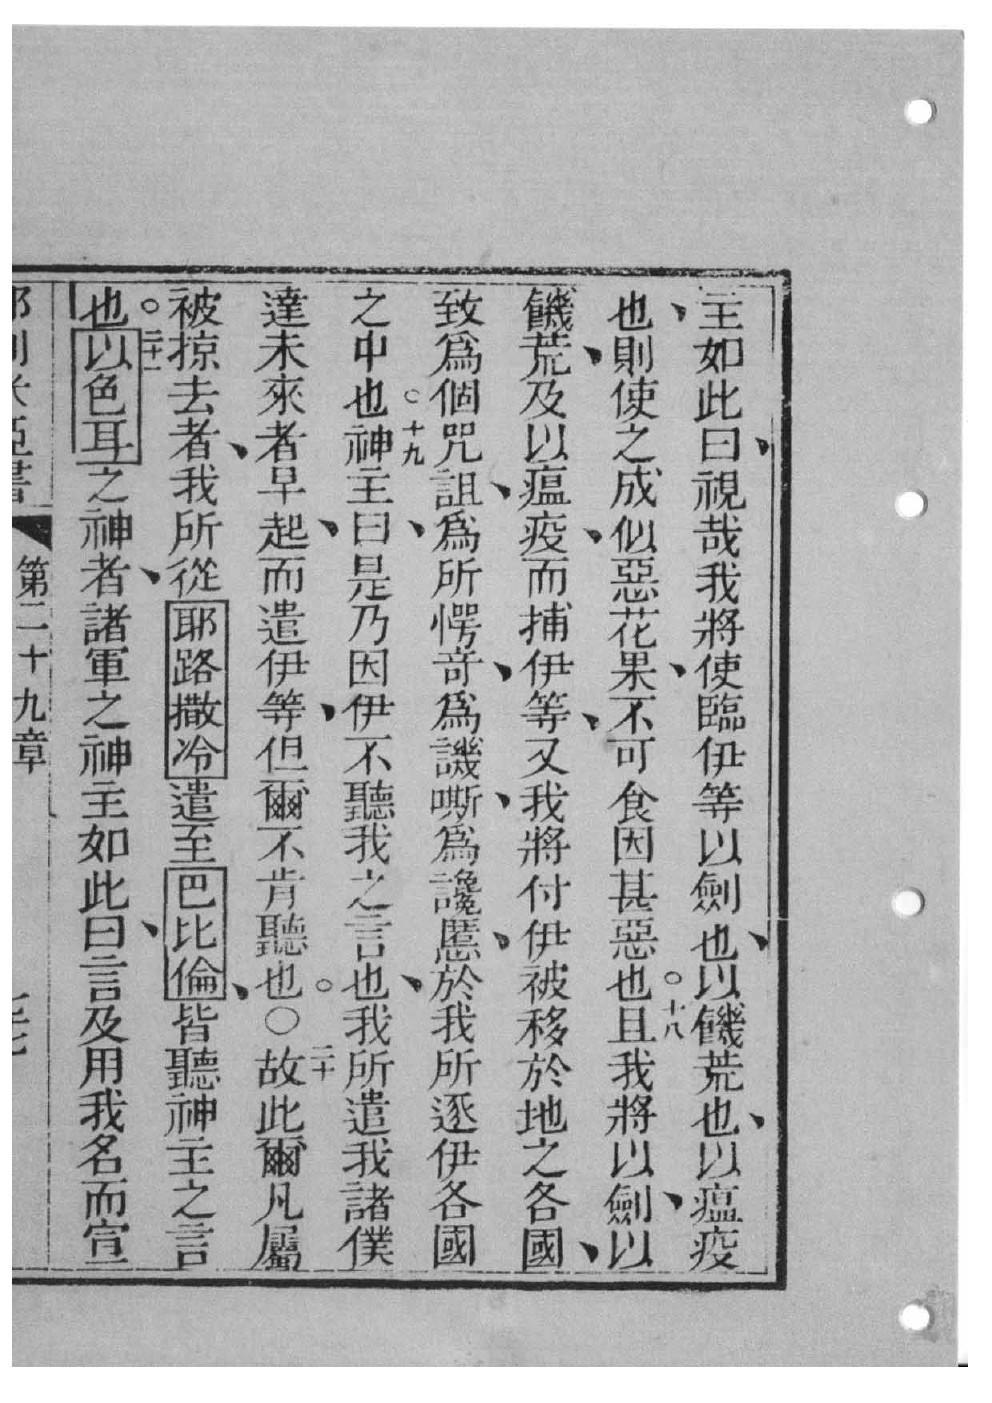 主如此曰、視哉我將使臨伊等以劍也、以饑荒也、以瘟疫
也、則使之成似惡花果、不可食因甚惡也。十八且我將以劍、以
饑荒、及以瘟疫、而捕伊等、又我將付伊被移於地之各國、
致爲個咒詛、爲所愕奇、爲譏嘶、爲讒慝、於我所逐伊各國
之中也。十九神主曰、是乃因伊不聽我之言也、我所遣我諸僕
達未來者早起、而遣伊等、但爾不肯聽也。〇二十故此爾凡屬
被掠去者、我所從耶路撒冷遣至巴比倫、皆聽神主之言
也。二十一以色耳之神者、諸軍之神主如此曰、言及用我名而宣
耶利米亞書 第二十九章